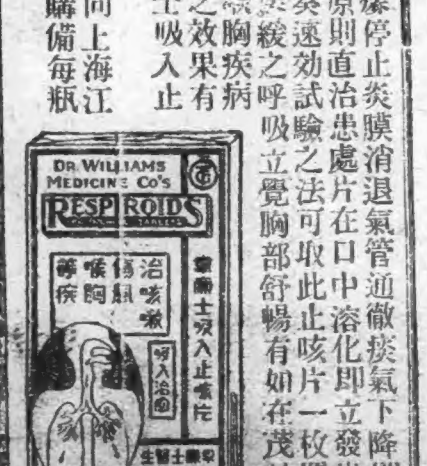 停止炎膜消退氣管通徹痰氣下降
原則直治患處片在口中溶化即立發
奏速効試驗之法可取此止咳片一枚
緩之呼吸立覺胸部舒暢有如在茂
胸疾病
之效果有
士吸入止
向上海江
購備每瓶
DR. WILLIAMS
MEDICINE CO'S
RESPIROIDS
韋廉士吸入止咳片
治咳嗽
傷風
喉胸
等疾
吸入治
韋廉士醫生